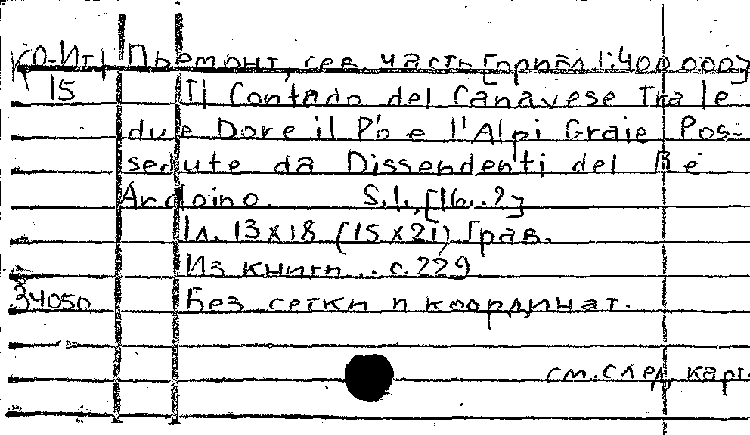 К0-Ит Пьемонт, сев. часть [ориг. 1:400 000]
15 Il Contado del Canavese Tra le
due Dore il Po e l'Alpi Graie Pos-
sedute da Dissendenti del Re
Ardoino. S.l., [16..?]
1 л. 13 x 18 (15 x 21) Грав.
Из книги .. с. 229.
34050 Без сетки и координат.
см. след. карт.